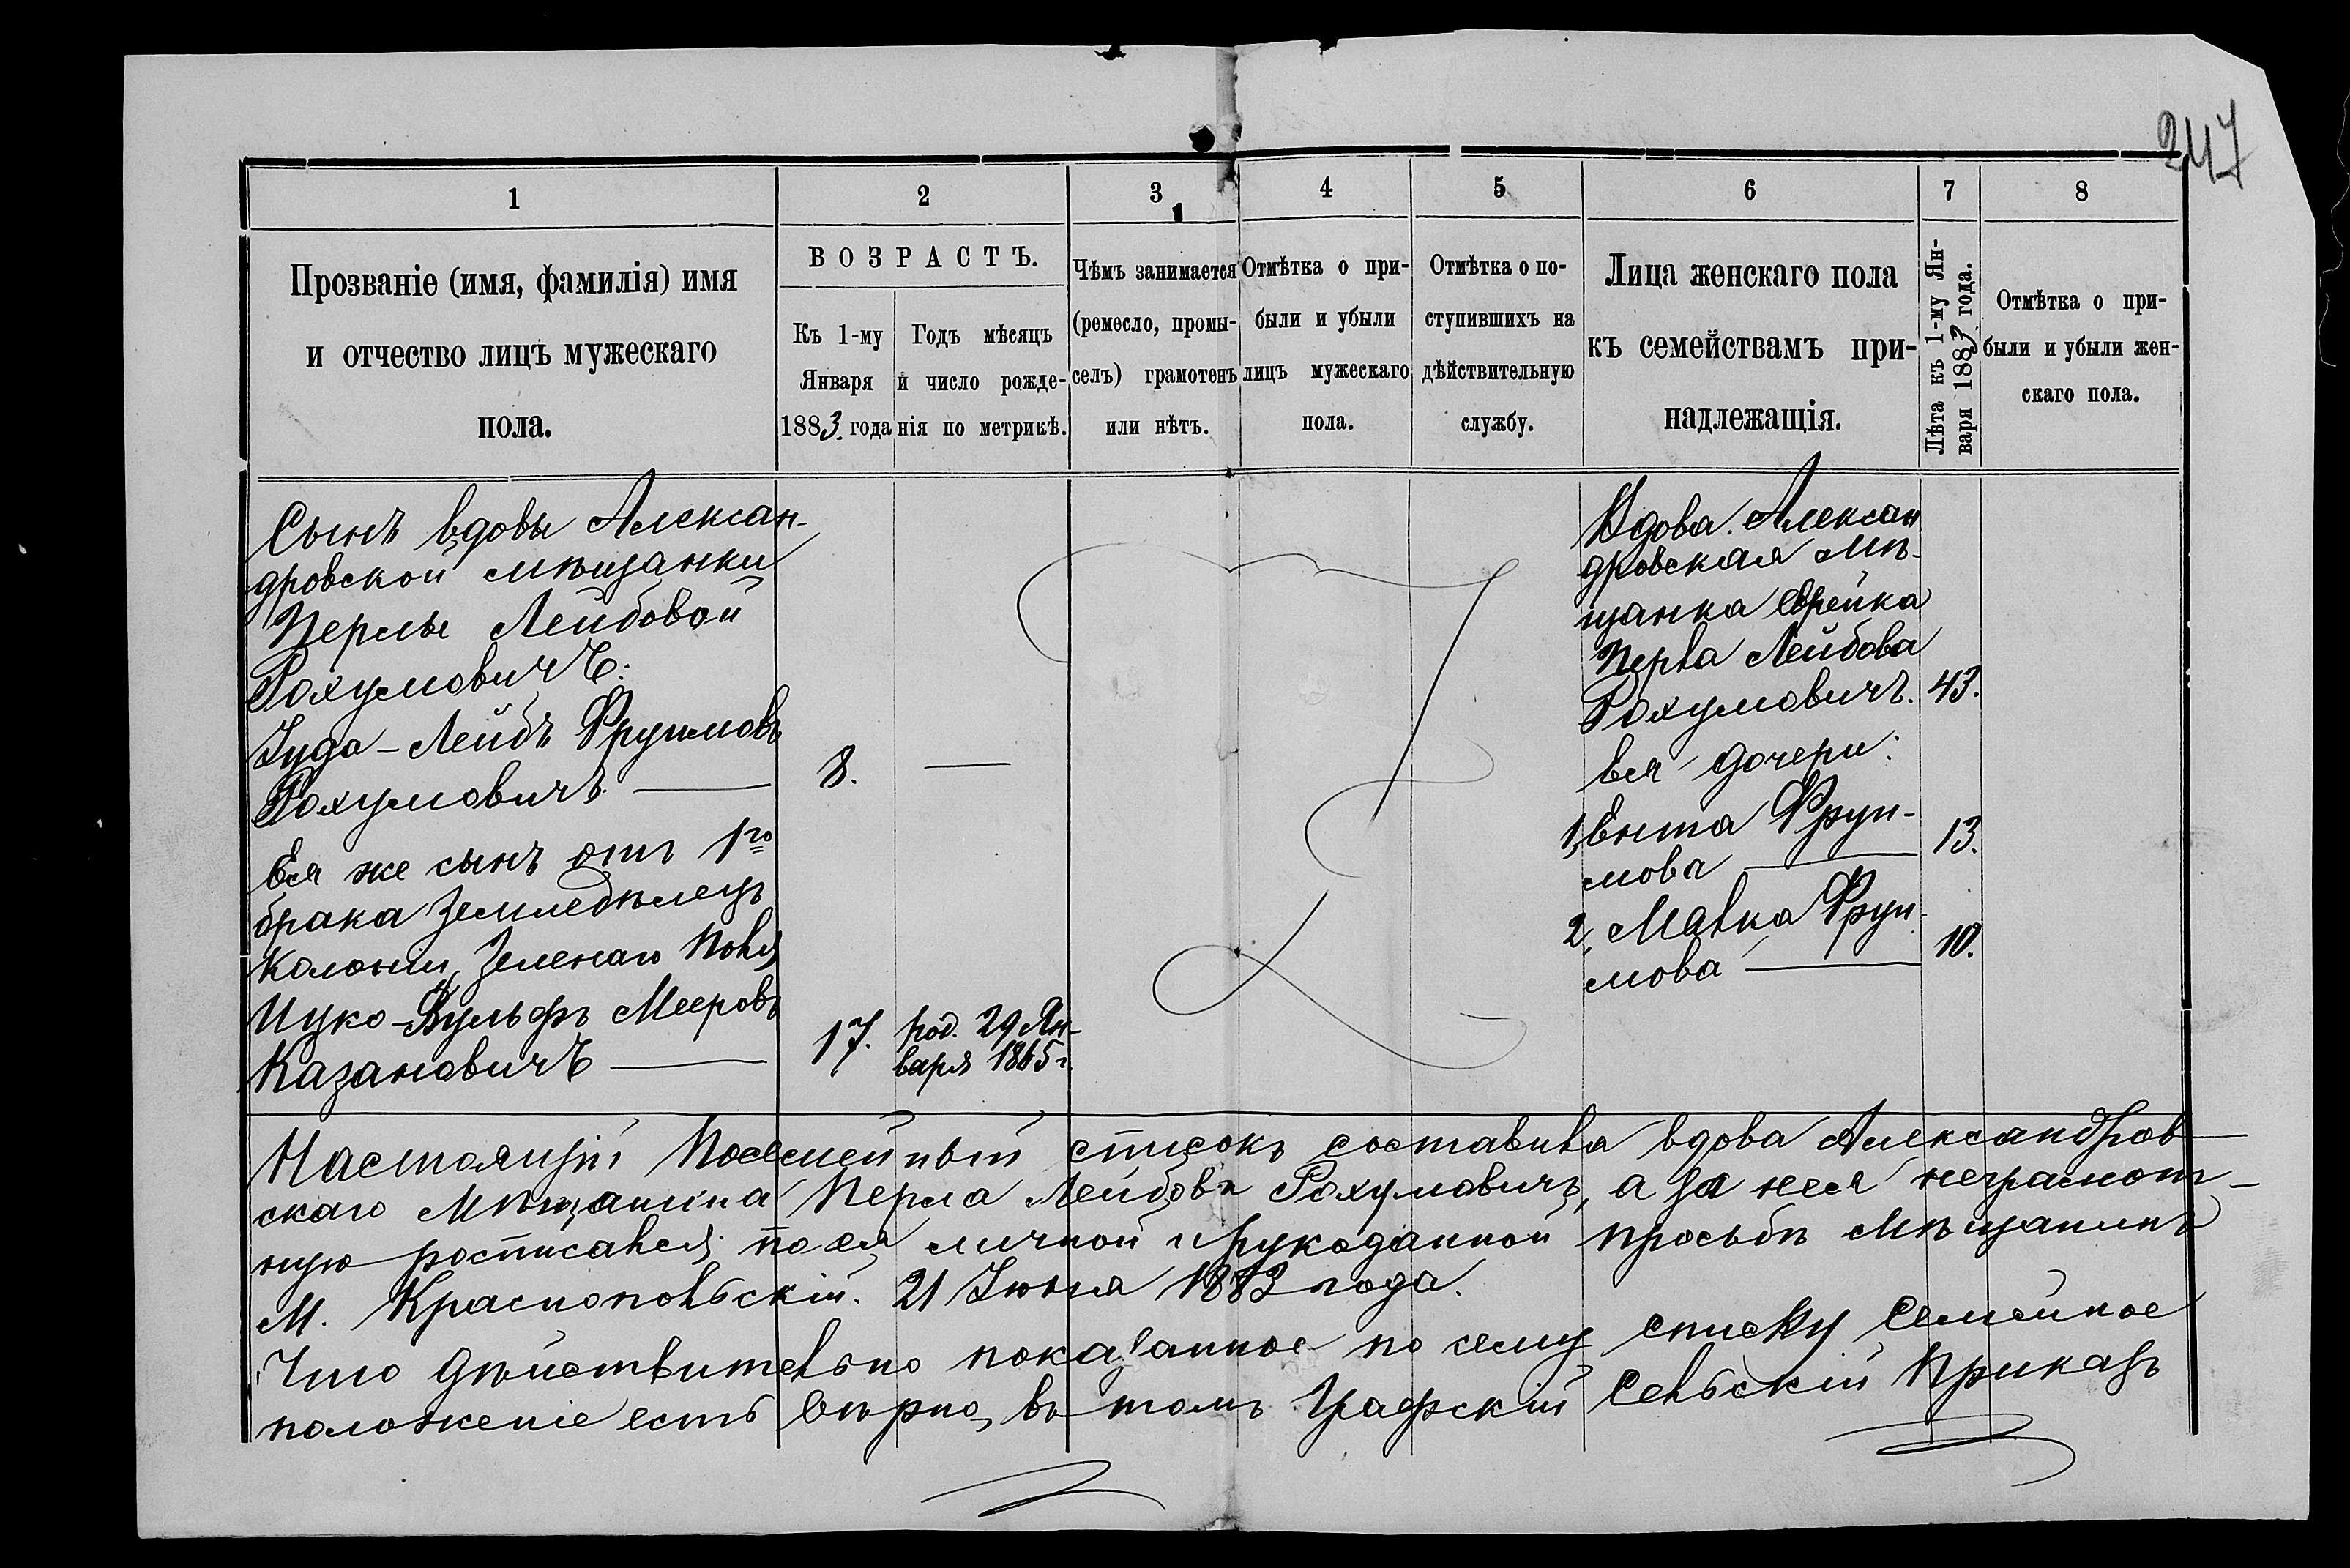 247
1
2
3
4
5
6
7
8
Прозваніе (имя, фамилія) имя
и отчество лицъ мужескаго
пола.
ВОЗРАСТЪ.
Къ 1-му
Января
1883. года
Годъ мѣсяцъ
и число рожде-
нія по метрикѣ.
Чѣмъ занимается
(ремесло, промы-
селъ) грамотенъ
или нѣтъ.
Отмѣтка о при-
были и убыли
лицъ мужескаго
пола.
Отмѣтка о по-
ступившихъ на
дѣйствительную
службу.
Лица женскаго пола
къ семействамъ при-
надлежащія.
Лѣта къ 1-му Ян-
варя 1883 года.
Отмѣтка о при-
были и убыли жен-
скаго пола.
Сынъ вдовы Алексан-
дровской мѣщанки
Перлы Лейбовой
Рохумовичъ:
Іуда-Лейбъ Фруимовъ
Рохумовичъ — 8. —
Ея же сынъ отъ 1го
брака Земледѣлецъ
Колоніи Зеленаго Поля
Ицко-Вульфъ Мееровъ
Казановичъ — 17. род. 29 Ян-
варя 1865 г.
Вдова Алексан
дровская Мѣ-
щанка еврейка
Перла Лейбова
Рохумовичъ. 43.
Ея дочери:
1, Ента Фруи-
мова — 13.
2, Малка Фруи-
мова — 10.
Настоящій Посемейный списокъ составила вдова Александров-
скаго Мѣщанина Перла Лейбова Рохумовичъ, а за нея неграмот-
ную росписался, по ея личной и рукоданной просьбѣ Мѣщанинъ
М. Краснопольскій. 21 Іюня 1883 года.
Что дѣйствительно показанное по сему списку Семейное
положеніе есть вѣрно, въ томъ Графскій Сельскій Приказъ